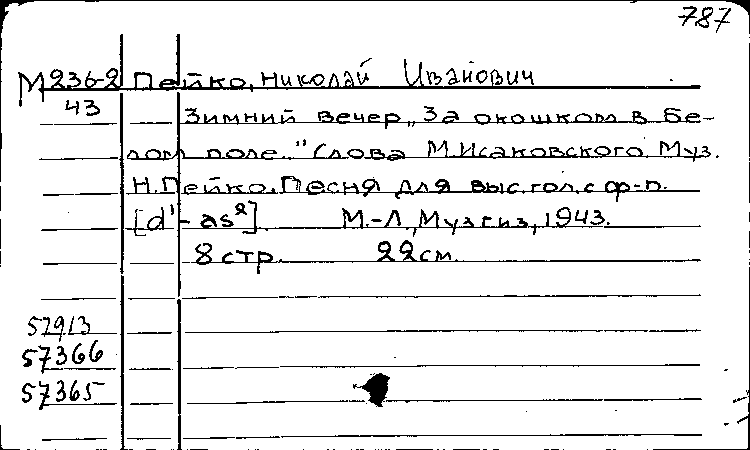 787
М236-2 Пейко, Николай Иванович
43 Зимний вечер „За окошком в бе-
лом поле..." Слова М.Исаковского. Муз.
Н.Пейко. Песня для выс. гол. с ф-п.
[d¹-as²]. М.-Л., Музгиз, 1943.
8 стр. 22 см.
57913
57366
57365